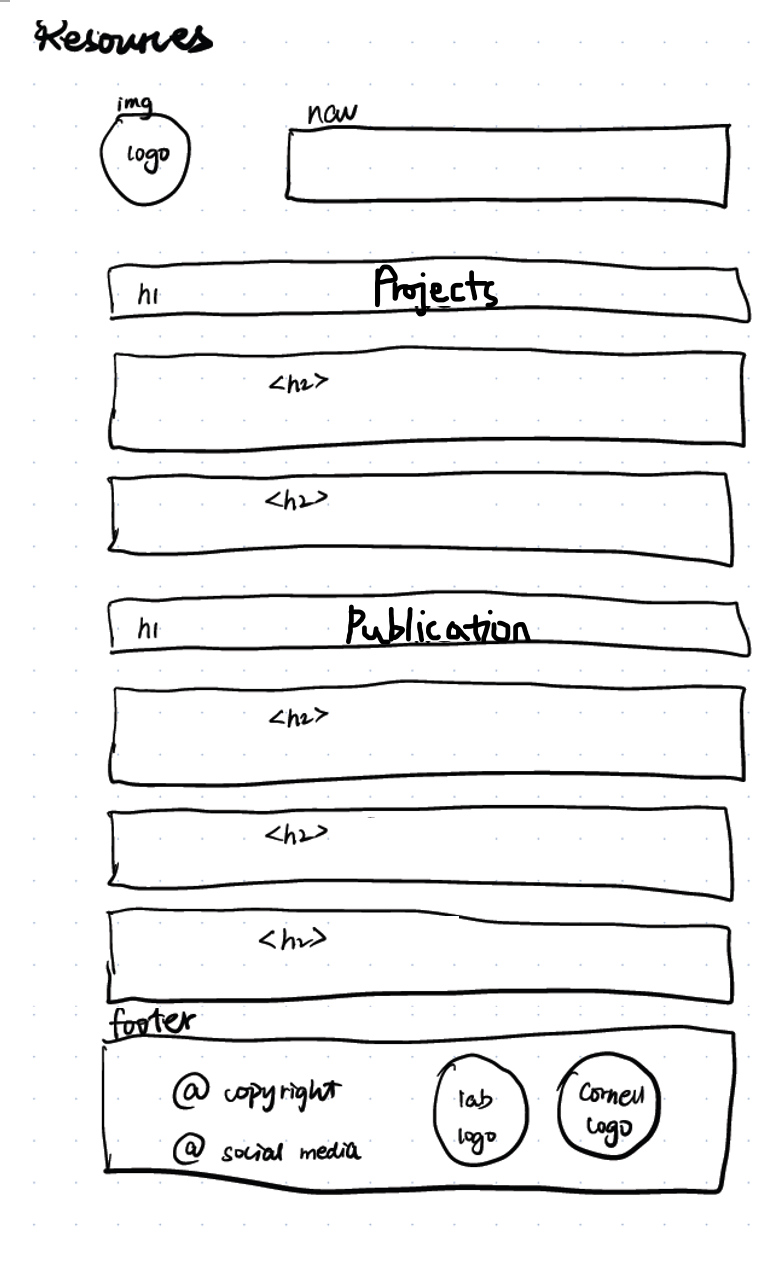 Resources
img
logo
nav
h1 Projects
<h2>
<h2>
h1 Publication
<h2>
<h2>
<h2>
footer
@ copyright
@ social media
lab
logo
Cornell
logo